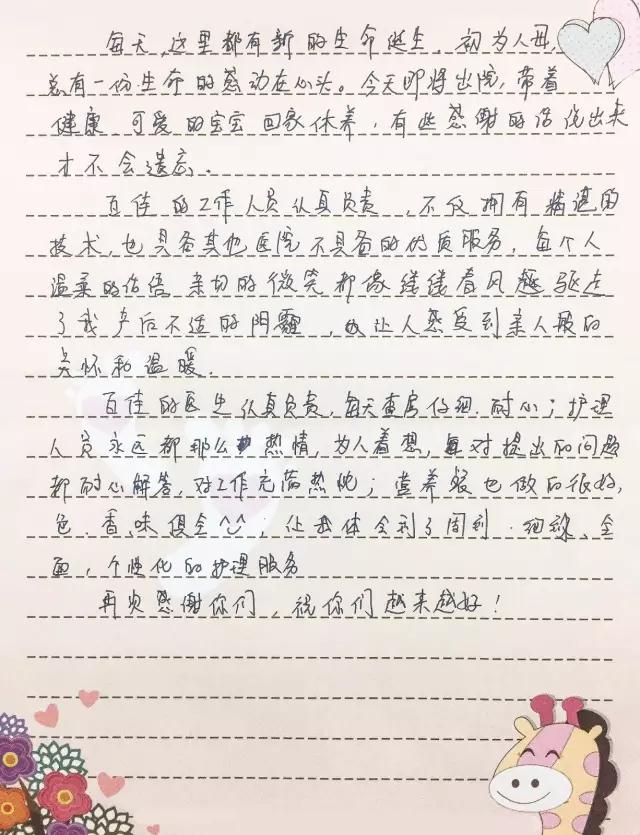 每天,这里都有新的生命诞生,初为人母,
总有一份生命的感动在心头。今天即将出院,带着
健康 可爱的宝宝 回家休养,有些感谢的话说出来
才不会遗忘.
百佳的工作人员认真负责,不仅拥有精湛的
技术,也具备其他医院不具备的优质服务,每个人
温柔的话语 亲切的微笑都像缕缕春风 驱走
了我产后不适的阴霾,让人感受到亲人般的
关怀和温暖.
百佳的医生认真负责,每天查房仔细.耐心;护理
人员永远都那么热情,为人着想,对提出的问题
都耐心解答,对工作充满热忱;营养餐也做的很好,
色.香.味俱全^^;让我体会到了周到.细致、全
面,个性化的护理服务
再次感谢你们,祝你们越来越好!